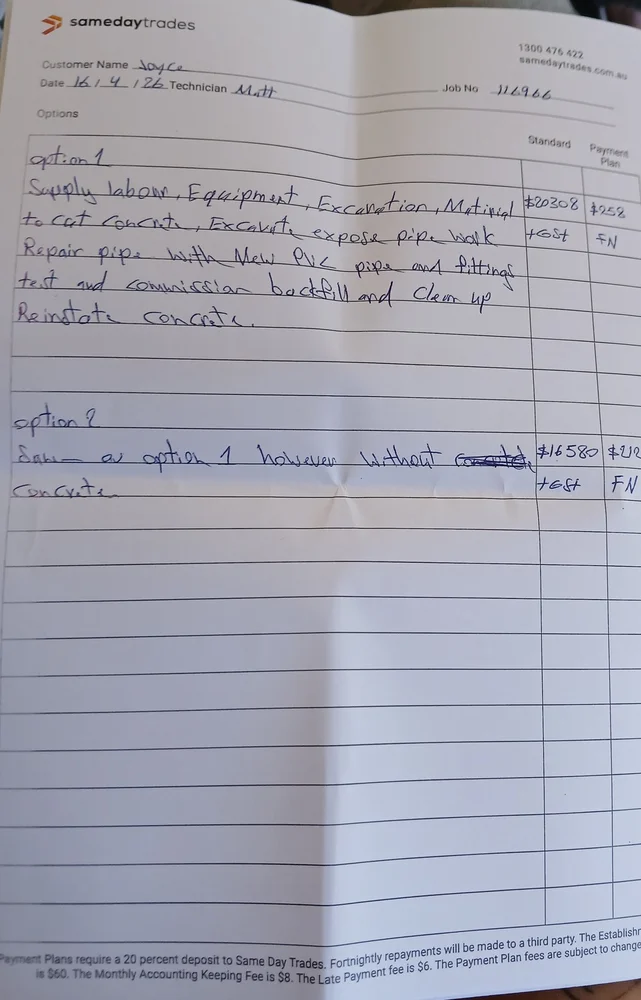 samedaytrades
1300 476 422
samedaytrades.com.au
Customer Name Joyce
Date 16/4/26 Technician Matt
Job No 116966
Options
Standard
Payment Plan
option 1
Supply labour, Equipment, Excavation, Matirial $20308 $258
to cut concrete, Excavate expose pipe work +GSt FN
Repair pipe with New PVC pipe and fittings
test and commission backfill and clean up
Reinstate concrete.
option 2
Same as option 1 however without $16580 $212
concrete +GSt FN
Payment Plans require a 20 percent deposit to Same Day Trades. Fortnightly repayments will be made to a third party. The
is $60. The Monthly Accounting Keeping Fee is $8. The Late Payment fee is $6. The Payment Plan fees are subject to change